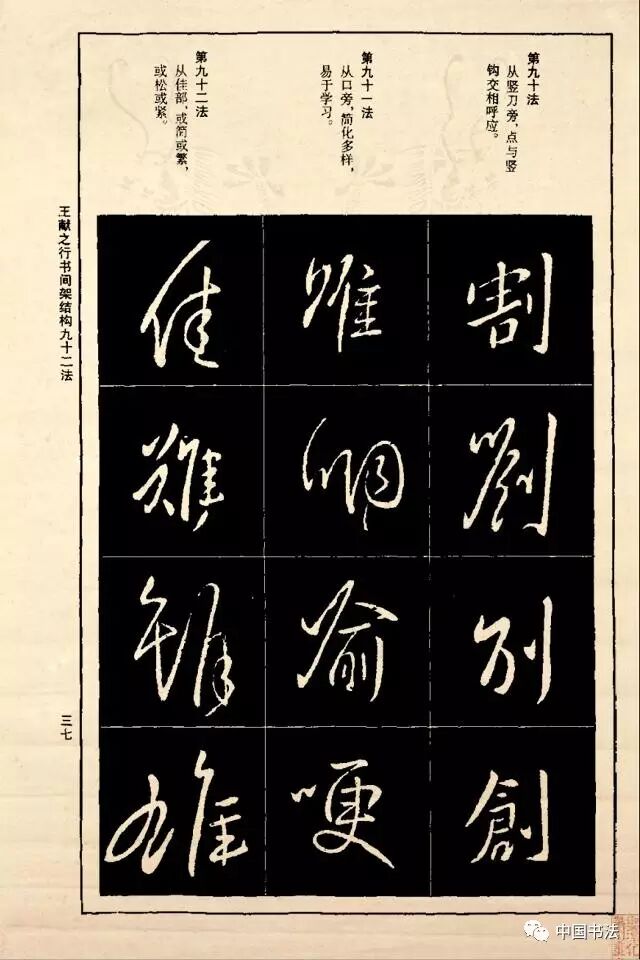 第九十法
从竖刀旁，点与竖
钩交相呼应。
第九十一法
从口旁，简化多样，
易于学习。
第九十二法
从佳部，或简或繁，
或松或紧。
割
劉
别
創
唯
喻
哽
佳
難
雄
王献之行书间架结构九十二法
三七
中国书法